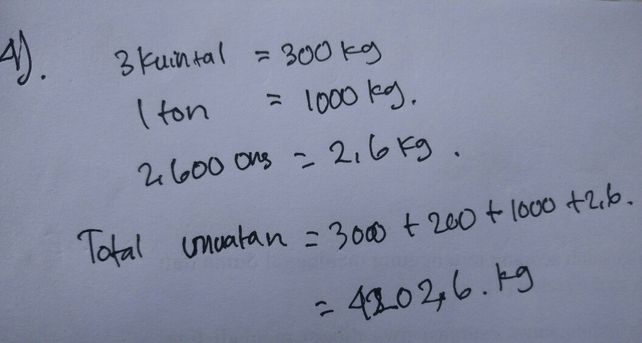 4).
3 kuintal = 300 kg
1 ton = 1000 kg.
2,600 ons = 2,6 kg.
Total muatan = 3000 + 200 + 1000 + 2,6.
= 4202,6. kg